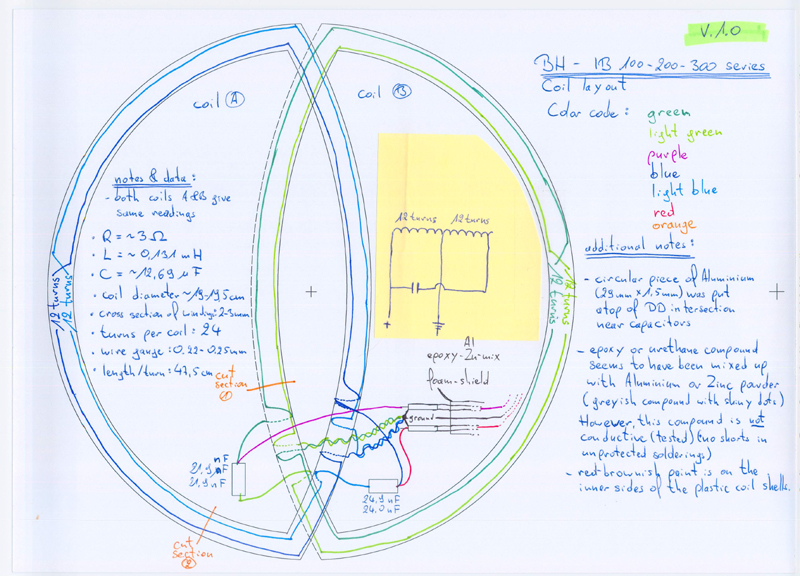 V.1.0
BH - IB 100-200-300 series
Coil layout
Color code:
green
light green
purple
blue
light blue
red
orange
coil A
coil B
notes & data:
- both coils A&B give
same readings
• R = ~3 Ω
• L = ~0,191 mH
• C = ~12,69 µF
• coil diameter ~19-19,5cm
• cross section of windig: 2-3mm
• turns per coil: 24
• wire gauge: 0,22-0,25mm
• length/turn: 47,5cm
12 turns
12 turns
12 turns 12 turns
+
12 turns
12 turns
additional notes:
- circular piece of Aluminium
(29mm x 1,5mm) was put
atop of DD intersection
near capacitors
- epoxy or urethane compound
seems to have been mixed up
with Aluminium or Zinc powder
(greyish compound with shiny dots)
However, this compound is not
conductive (tested)
unprotected solderings)
- red-brownish paint is on the
inner sides of the plastic coil shells.
Al
epoxy-Zn-mix
foam-shield
ground
cut
section
1
nF
21,9 nF
24,9 nF
24,0 nF
cut
section
2